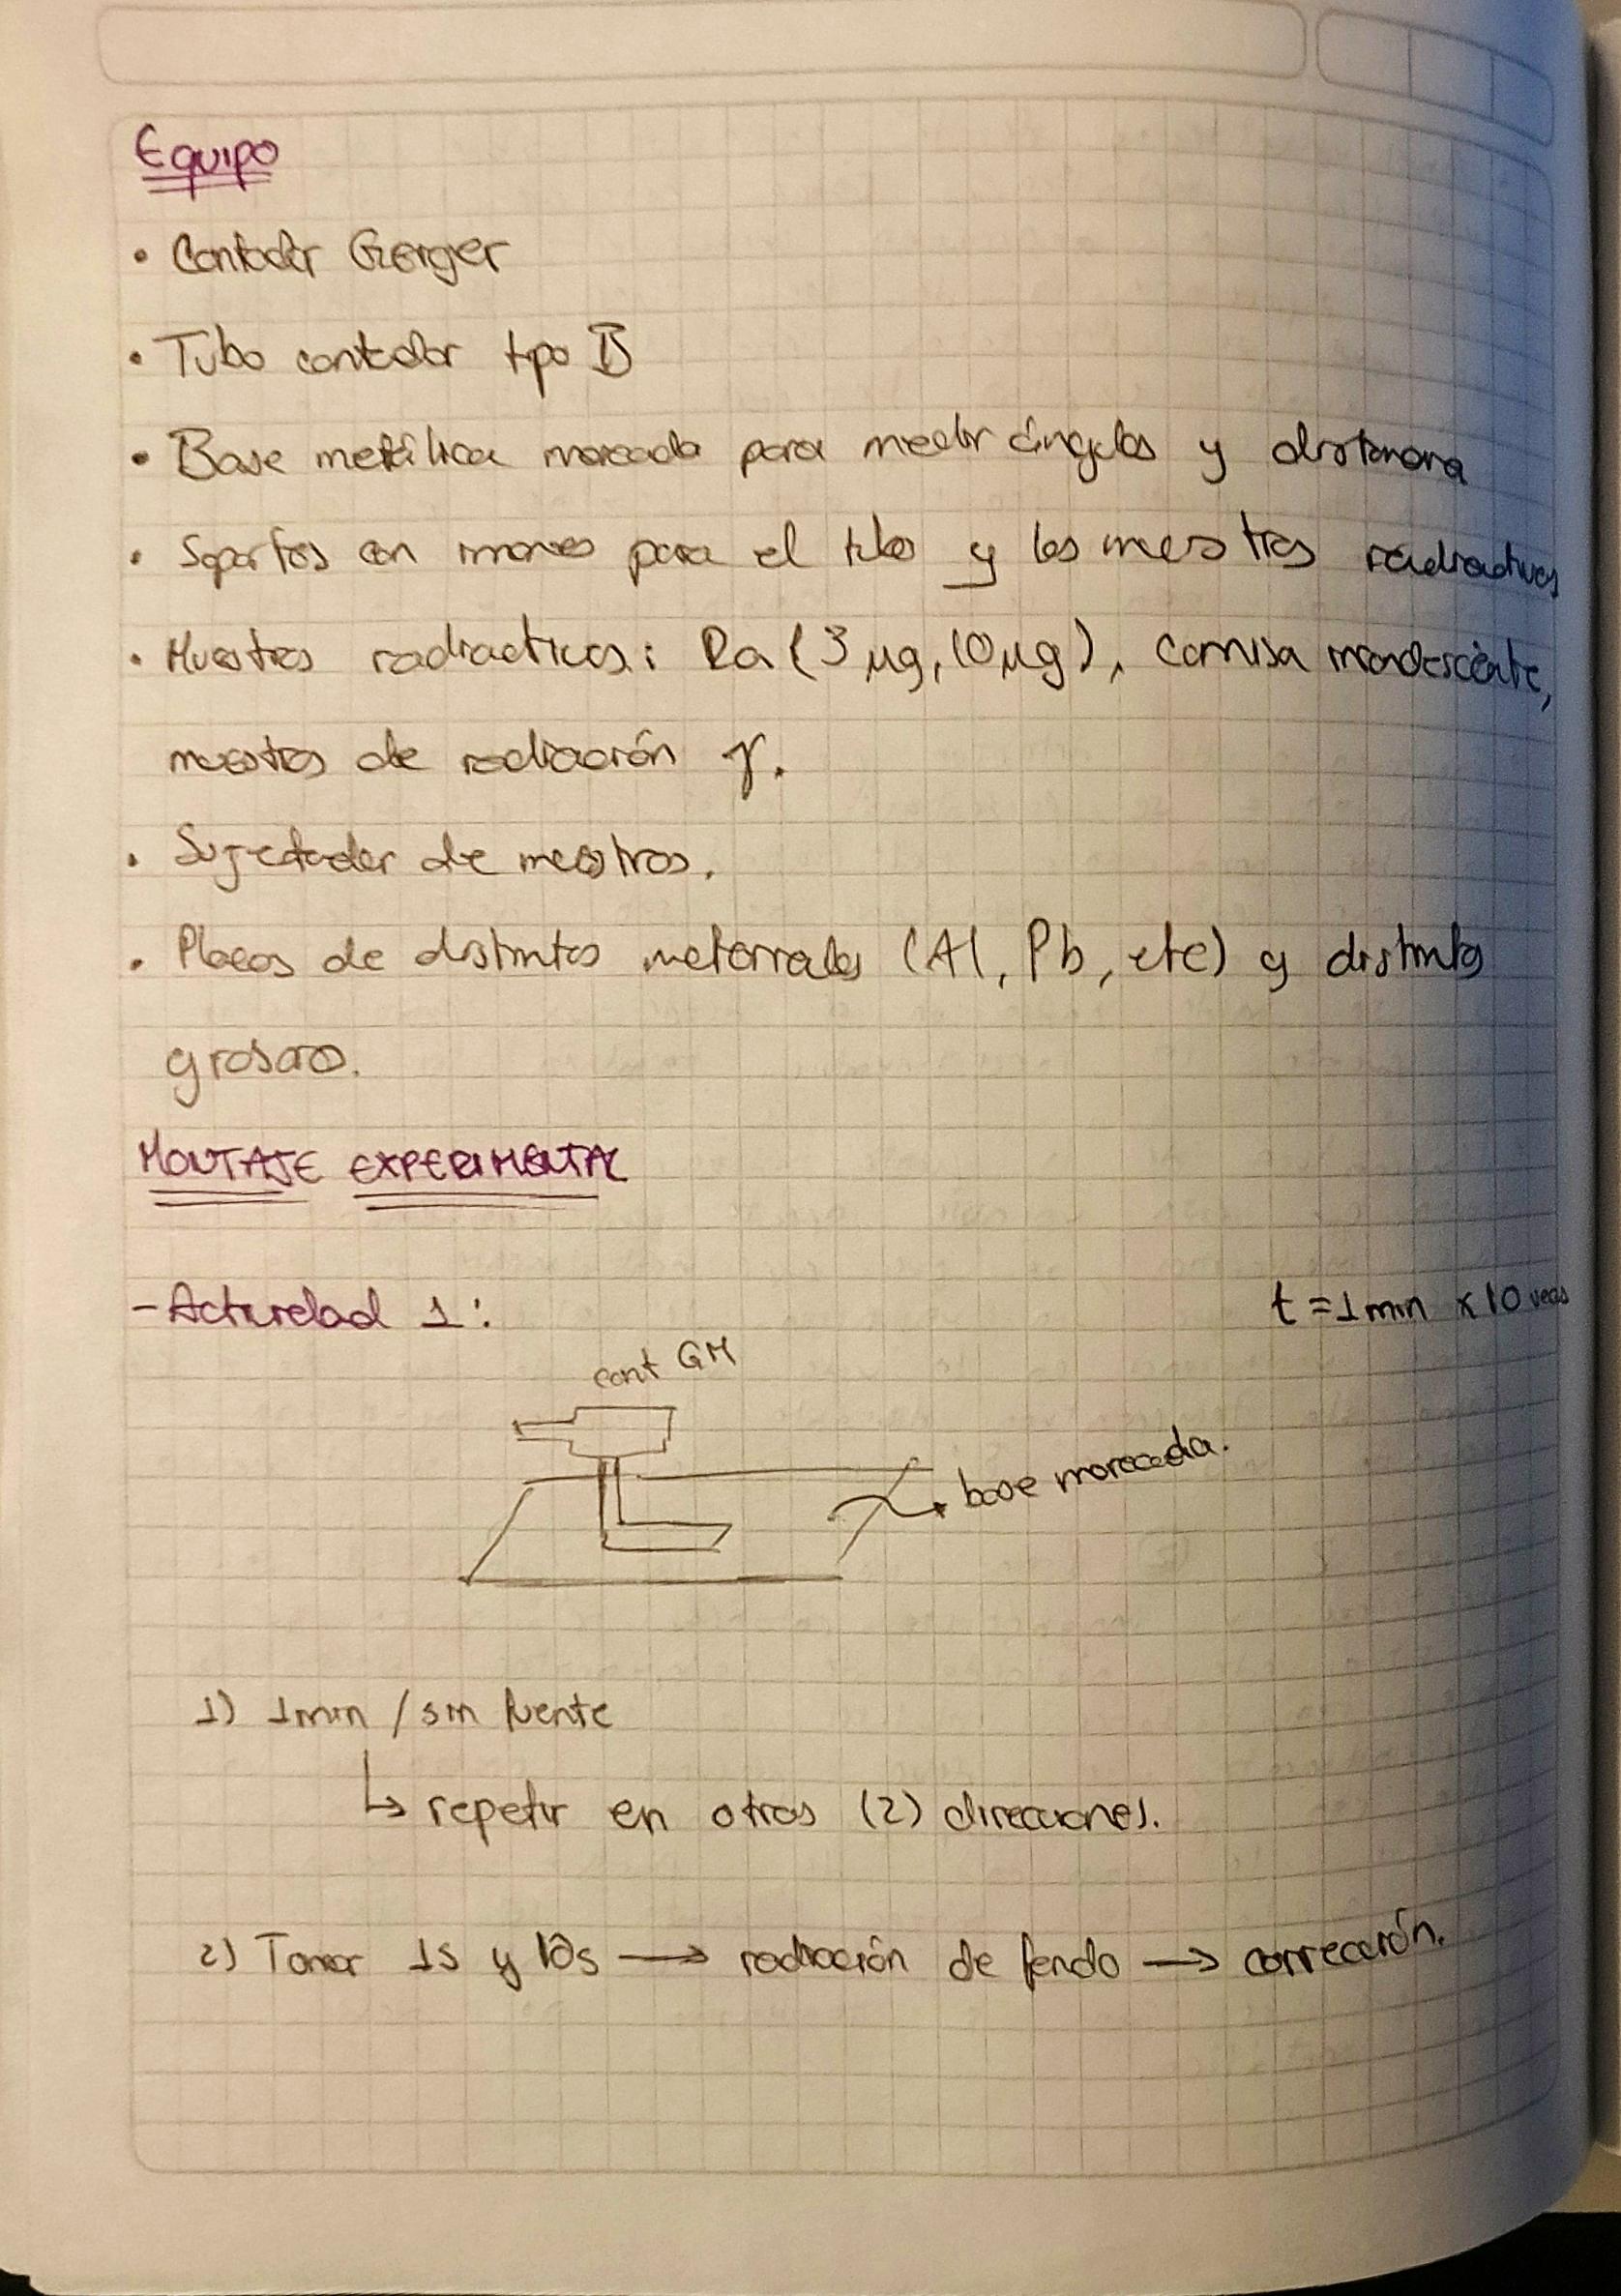 Equipo
• Contador Geiger
• Tubo contador tipo B
• Base metálica marcada para medir ángulos y distancia
• Soportes con imanes para el tubo y las muestras radiactivas
• Muestras radiactivas: Ra (3 μg, 10 μg), camisa incandescente,
muestras de radiación γ.
• Sujetador de muestras.
• Placas de distintos materiales (Al, Pb, etc) y distintos
grosores.
MONTAJE EXPERIMENTAL
- Actividad 1:
t = 1 min x 10 veces
cont GM
base marcada.
1) 1 min / sin fuente
↳ repetir en otras (2) direcciones.
2) Tomar 1s y 10s → radiación de fondo → corrección.